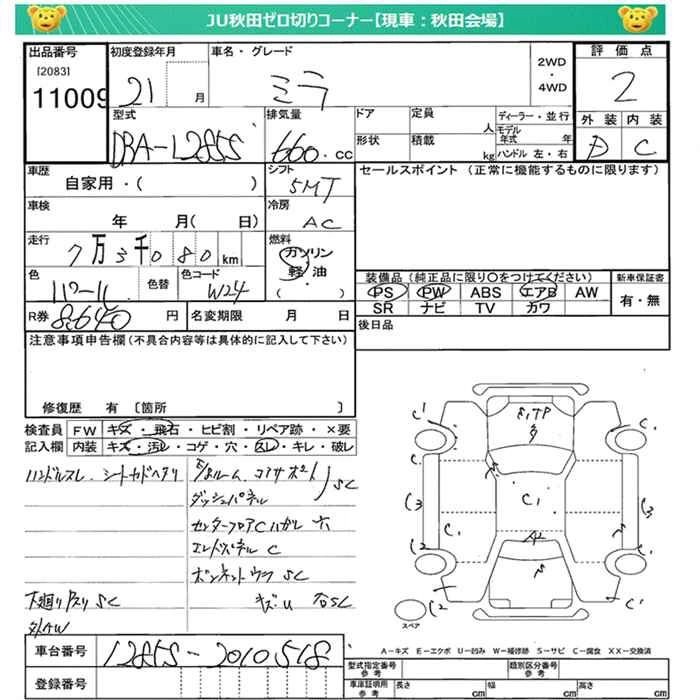 JU秋田ゼロ切りコーナー【現車：秋田会場】
出品番号 初度登録年月 車名・グレード 評価点
[2083] 21 月 ミラ 2WD・4WD 2
11009
型式 排気量 ドア 定員 人 ディーラー・並行 外装 内装
DBA-L285S 660.cc 形状 積載 kg モデル年式 年 ハンドル 左・右 D C
車歴 シフト セールスポイント (正常に機能するものに限ります)
自家用・( ) 5MT
車検 冷房
年 月( 日) AC
走行 燃料
7万3千080km ガソリン
軽・油
( )
色 色替 色コード 装備品(純正品に限り○をつけてください) 新車保証書
W24 PS PW ABS エアB AW 有・無
SR ナビ TV カワ
R券 8,640円 名変期限 月 日 後日品
注意事項申告欄(不具合内容等は具体的に記入して下さい)
修復歴 有〔箇所 〕
検査員 FW キズ・飛石・ヒビ割・リペア跡・×要
記入欄 内装 キズ・汚レ・コゲ・穴・スレ・キレ・破レ
ハンドルスレ、シートカドヘタリ
SC
ダッシュパネル
センターフロアCハガレ 穴
エンドパネル C
ボンネットウラ SC
下廻りアスリ SC
C1
C
C3
C3
C1
C1
C1
C2
C2
スペア
A―キズ E―エクボ U―凹み W―補修跡 S―サビ C―腐食 XX―交換済
車台番号 L285S-2010518 型式指定番号 参考 類別区分番号 参考
登録番号 車庫証明用 参考 長さ cm 幅 cm 高さ cm